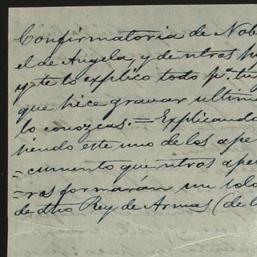 Confirmatoria de Nob
el de Angela, y de ntros p
y te lo explico todo pª. tu
que hice gravar ultim
lo conozcas. = Explicando
siendo este uno de los ape
= cumento que ntros ape
= ros formarán un solo
de dho Rey de Armas (de l